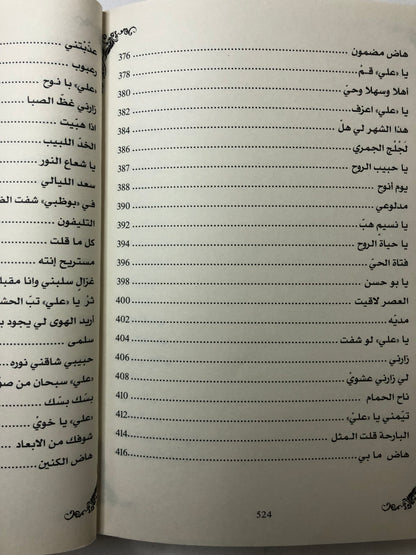 هاض مضمون 376
يا «علي» قمْ 378
أهلا وسهلا وحيّ 380
يا «علي» اعزف 382
هذا الشهر لي هلّ 384
لَجْلَج الجمري 386
يا حبيب الروح 387
يوم أنوح 388
مدلوعي 390
يا نسيم هبّ 392
يا حياة الروح 394
فتاة الحيّ 396
يا بو حسن 398
العصر لاقيت 400
مديّه 402
يا «علي» لو شفت 404
زارني 406
لي زارني عشويْ 408
ناح الحمام 410
تيّمني يا «علي» 412
البارحة قلت المثل 414
هاض ما بي 416
524
عذّبْتني
رعبوب
«علي» يا نوح
زارني غظّ الصبا
اذا هبّيت
الخدّ اللبيب
يا شعاع النور
سعد الليالي
في «بوظبي» شفت
التليفون
كل ما قلت
مستريح إنته
غزالٍ سلبني وانا
ثرْ يا «علي» تبّ
أريد الهوى لي يجود
سلمى
حبيبي شاقني نوره
«علي» سبحان من
بسّك بسّك
«علي» يا خويْ
شوفك من الابعاد
هاض الكنين